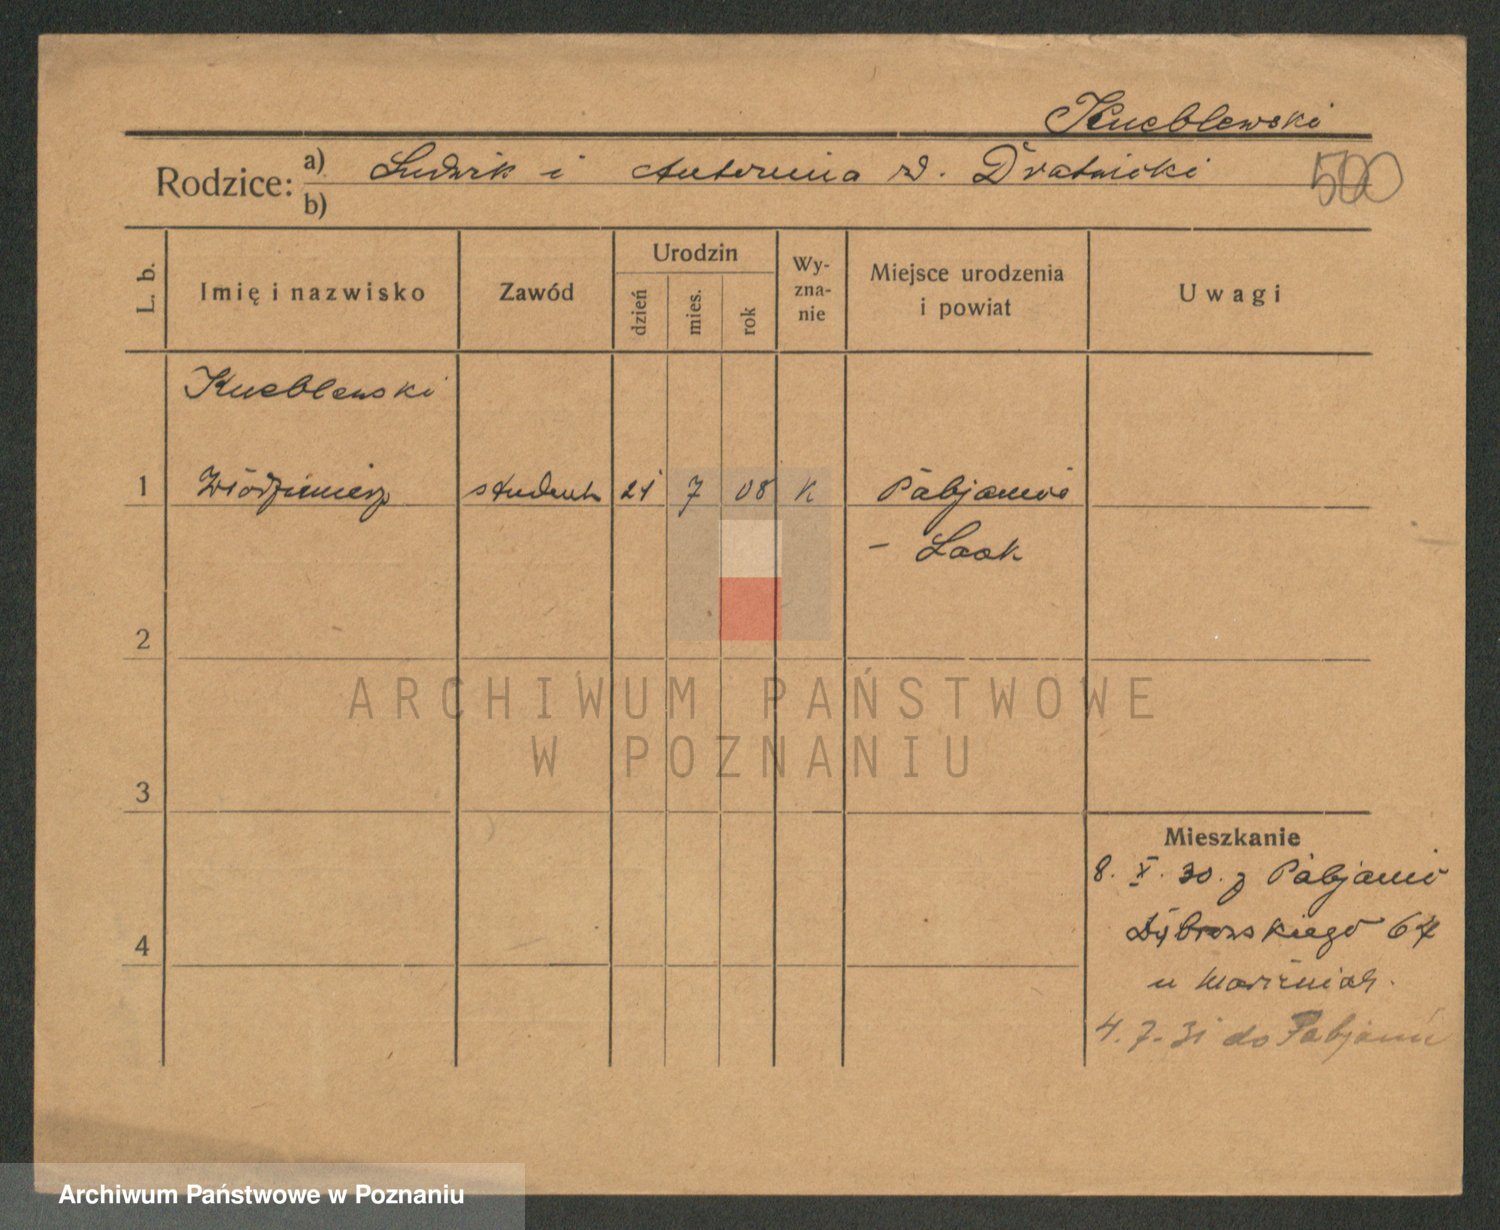 Kueblewski
Rodzice: a) Ludwik i Antonina z d. Dratnicki
b)
500
L. b.
Imię i nazwisko
Zawód
Urodzin
dzień
mies.
rok
Wy-
zna-
nie
Miejsce urodzenia
i powiat
Uwagi
Kueblewski
1 Włodzimierz student 21 7 08 K Pabjanic
- Łask
2
ARCHIWUM PAŃSTWOWE
W POZNANIU
3
Mieszkanie
8. X. 30. z Pabjanic
4
Dąbrowskiego
u
4.7.31 do Pabjanic
Archiwum Państwowe w Poznaniu